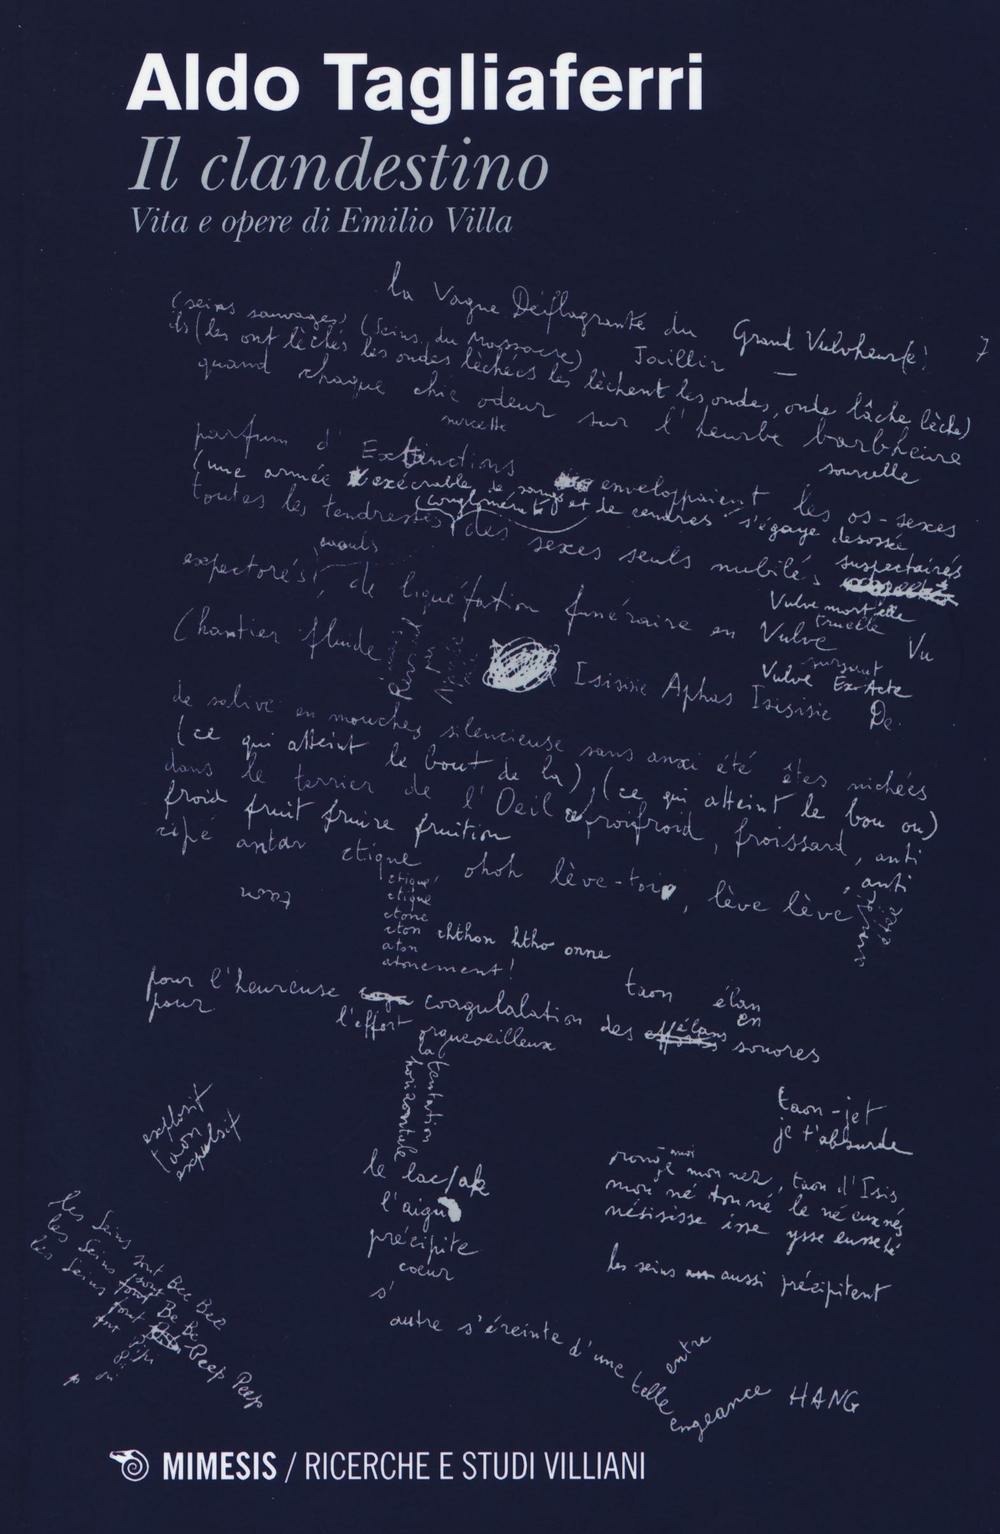 Aldo Tagliaferri
Il clandestino
Vita e opere di Emilio Villa
la Vague Déflagrante du Grand Vulvheur(e)
(seins sauvages) (Seins du Massacre) Jaillir
ils (les ont lêchés les ondes lêchées les lêchent les ondes, onde lâche lèche)
quand chaque chic odeur sur l'heurbe barbheure
parfum d' Extinctions enveloppaient les os-sexes
sourcelle
(une armée exécrable de et de cendres s'égaye desossée
toutes les tendresses, des sexes seuls nubiles, suspectairés
(conglomérat)
expectorés, de liquéfation funéraire en Vulve Vu
Vulve mort elle
truelle
Vulve Ex-Acte
Chantier fluide Isisisie Aphas Isisisie De
de salive en mouches silencieuse sans anxi été êtes nichées
(ce qui atteint le bout de la) (ce qui atteint le bou ou)
dans le terrier de l'Oeil froufroid, froissard, anti
froid fruit fruire fruition , anti
ripé antar ctique ohoh lève-toi, lève lève
ctique
ctique
ctone
cton chthon htho onne
aton
atonement!
taon
taon élan
en
pour l'heureuse coagulalation des élans sonores
pour l'effort orgueoeilleux
la tentation
horizontale
explosit
taon
expulsit
taon-jet
je t'absurde
le lac/ak
l'aigu
précipite
coeur
s'
mon nez, taon d'Isis
mon né tonné le né euxnés
nésisisse isse ysse eusseté
les seins aussi précipitent
les Seins sont Bee Bee
les Seins font Be Be
les Seins font Peep Peep
autre s'éreinte d'une telle engeance HANG
entre
MIMESIS / RICERCHE E STUDI VILLIANI